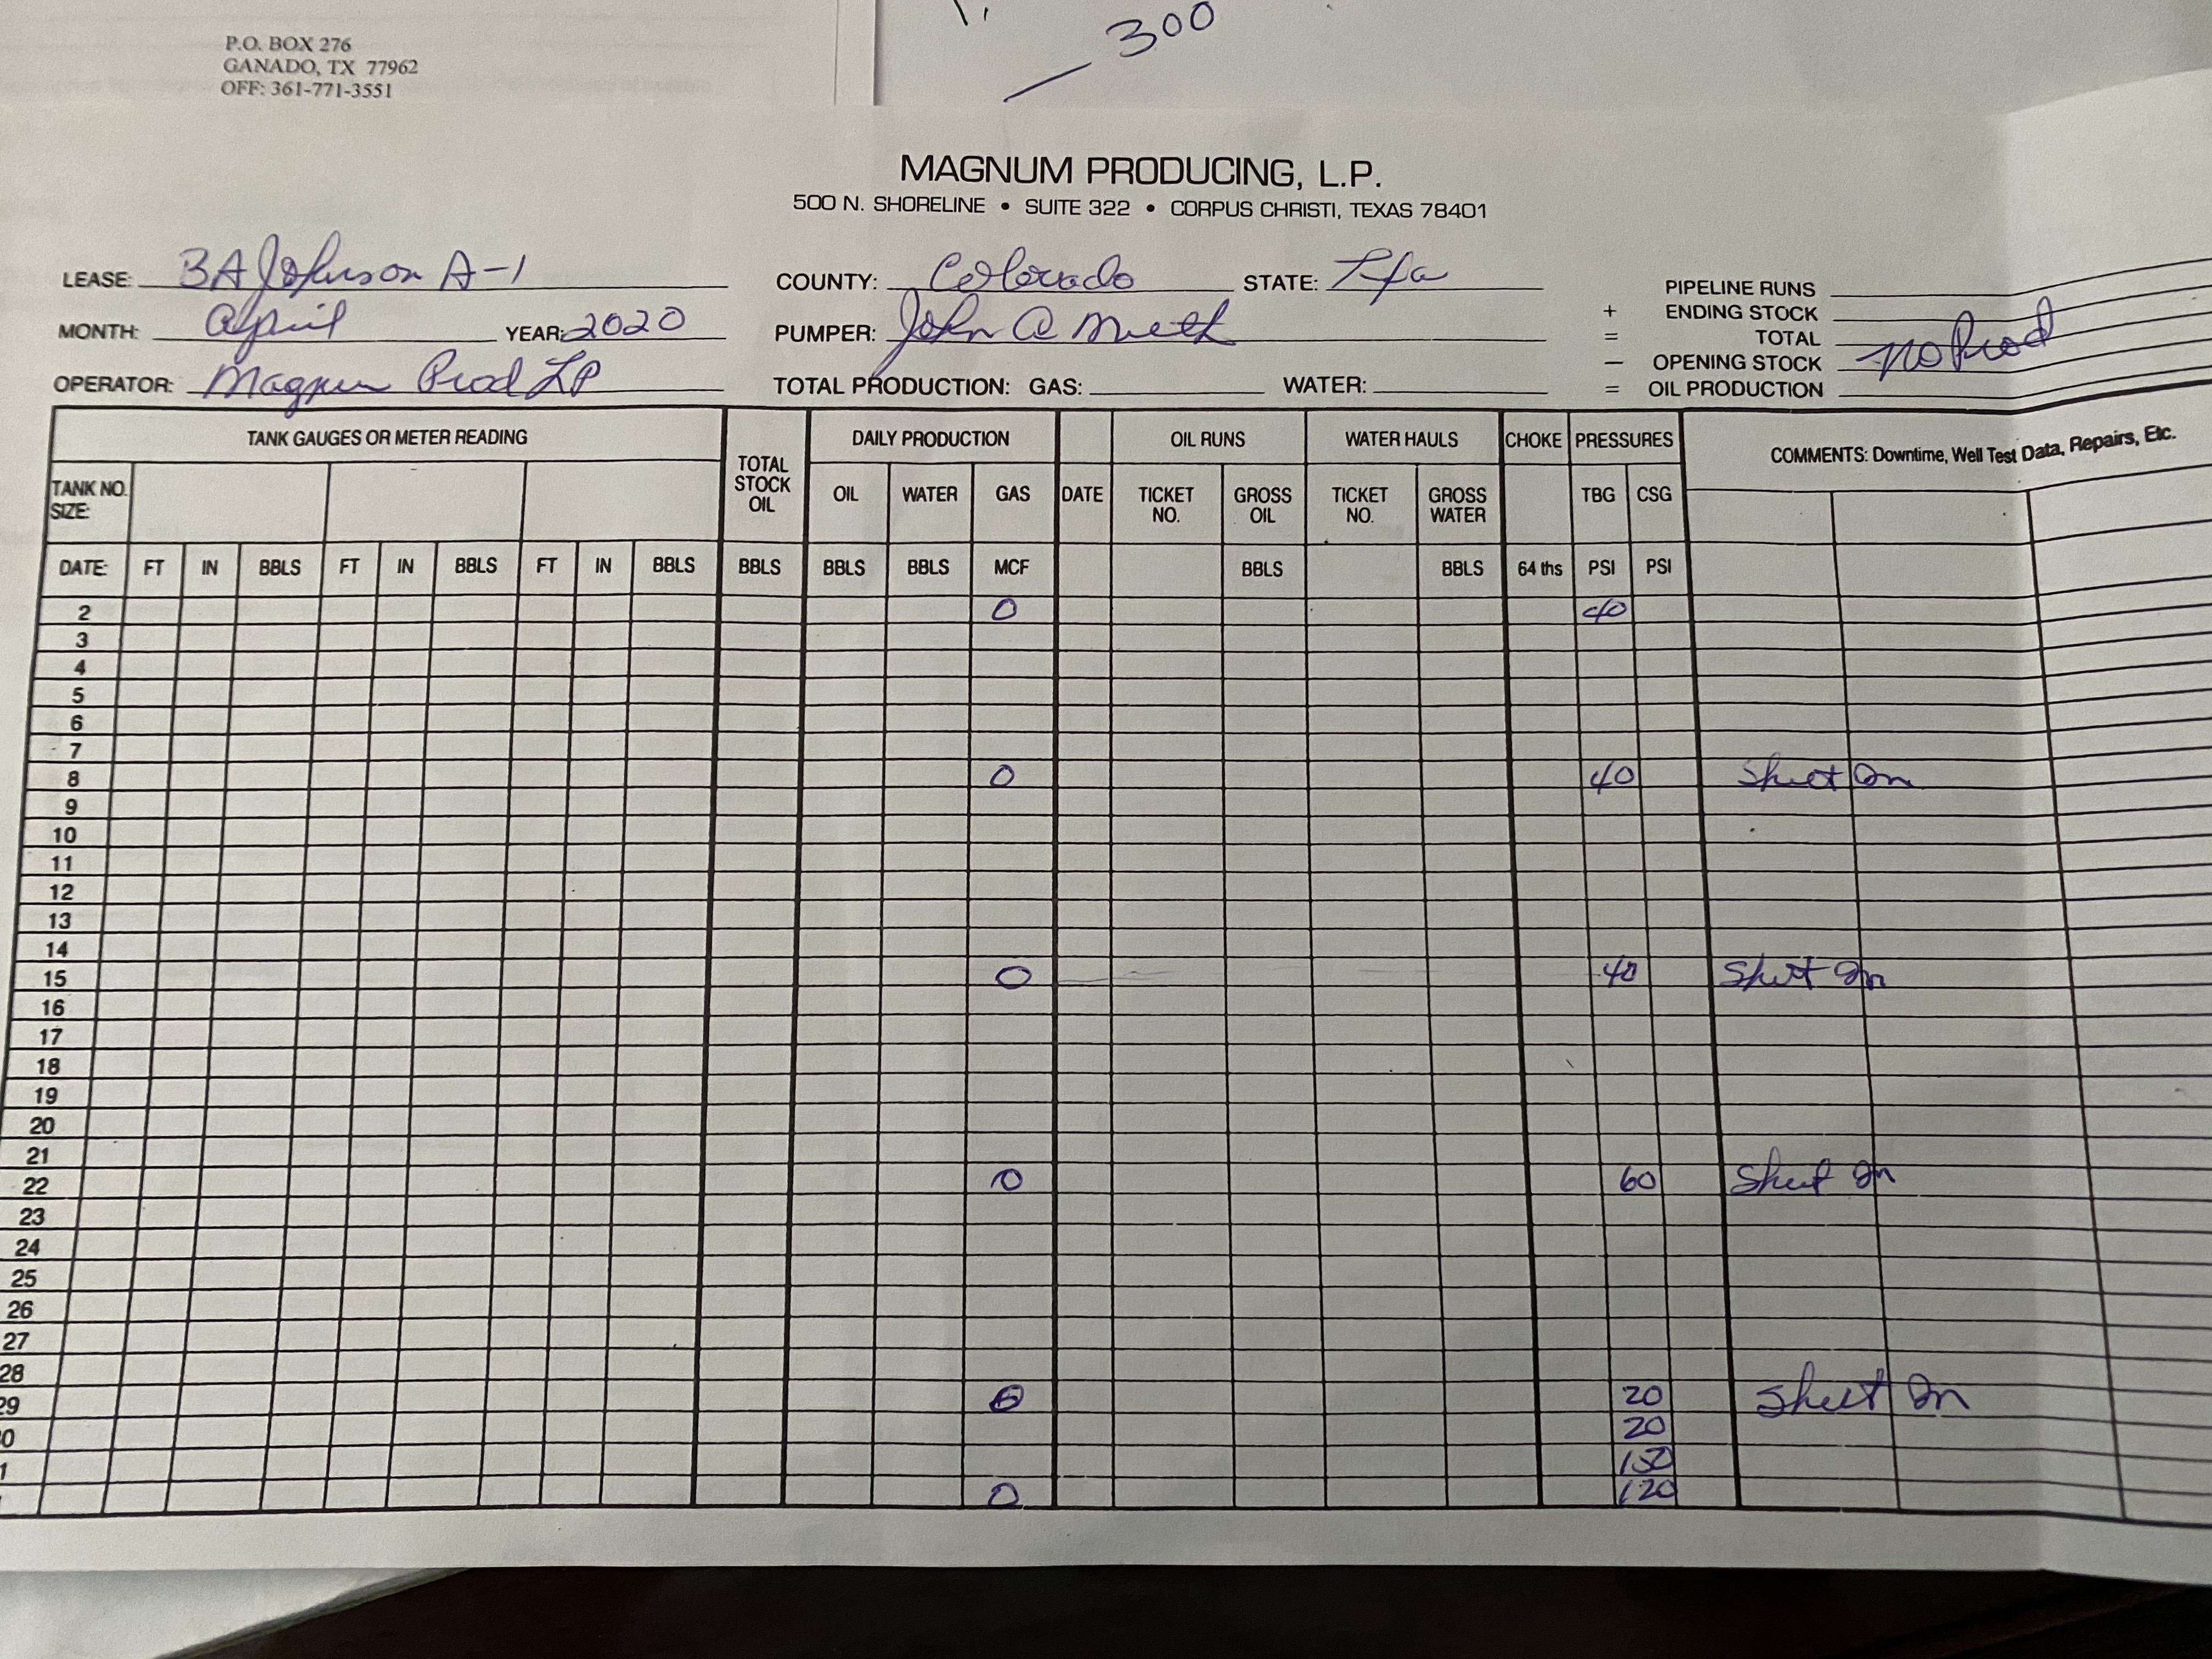 300
P.O. BOX 276
GANADO, TX 77962
OFF: 361-771-3551
MAGNUM PRODUCING, L.P.
500 N. SHORELINE • SUITE 322 • CORPUS CHRISTI, TEXAS 78401
LEASE: BA Johnson A-1 COUNTY: Colorado STATE: PIPELINE RUNS
MONTH: April YEAR: 2020 PUMPER: John A + ENDING STOCK
= TOTAL
OPERATOR: Magnum Prod LP TOTAL PRODUCTION: GAS: WATER: − OPENING STOCK no Prod
= OIL PRODUCTION
TANK GAUGES OR METER READING TOTAL STOCK OIL DAILY PRODUCTION OIL RUNS WATER HAULS CHOKE PRESSURES COMMENTS: Downtime, Well Test Data, Repairs, Etc.
TANK NO. SIZE: OIL WATER GAS DATE TICKET NO. GROSS OIL TICKET NO. GROSS WATER TBG CSG
DATE: FT IN BBLS FT IN BBLS FT IN BBLS BBLS BBLS BBLS MCF BBLS BBLS 64 ths PSI PSI
2 0 40
3
4
5
6
7
8 0 40 Shut In
9
10
11
12
13
14
15 0 40 Shut In
16
17
18
19
20
21
22 0 60 Shut In
23
24
25
26
27
28
29 0 20 Shut In
0 20
1 150
0 120